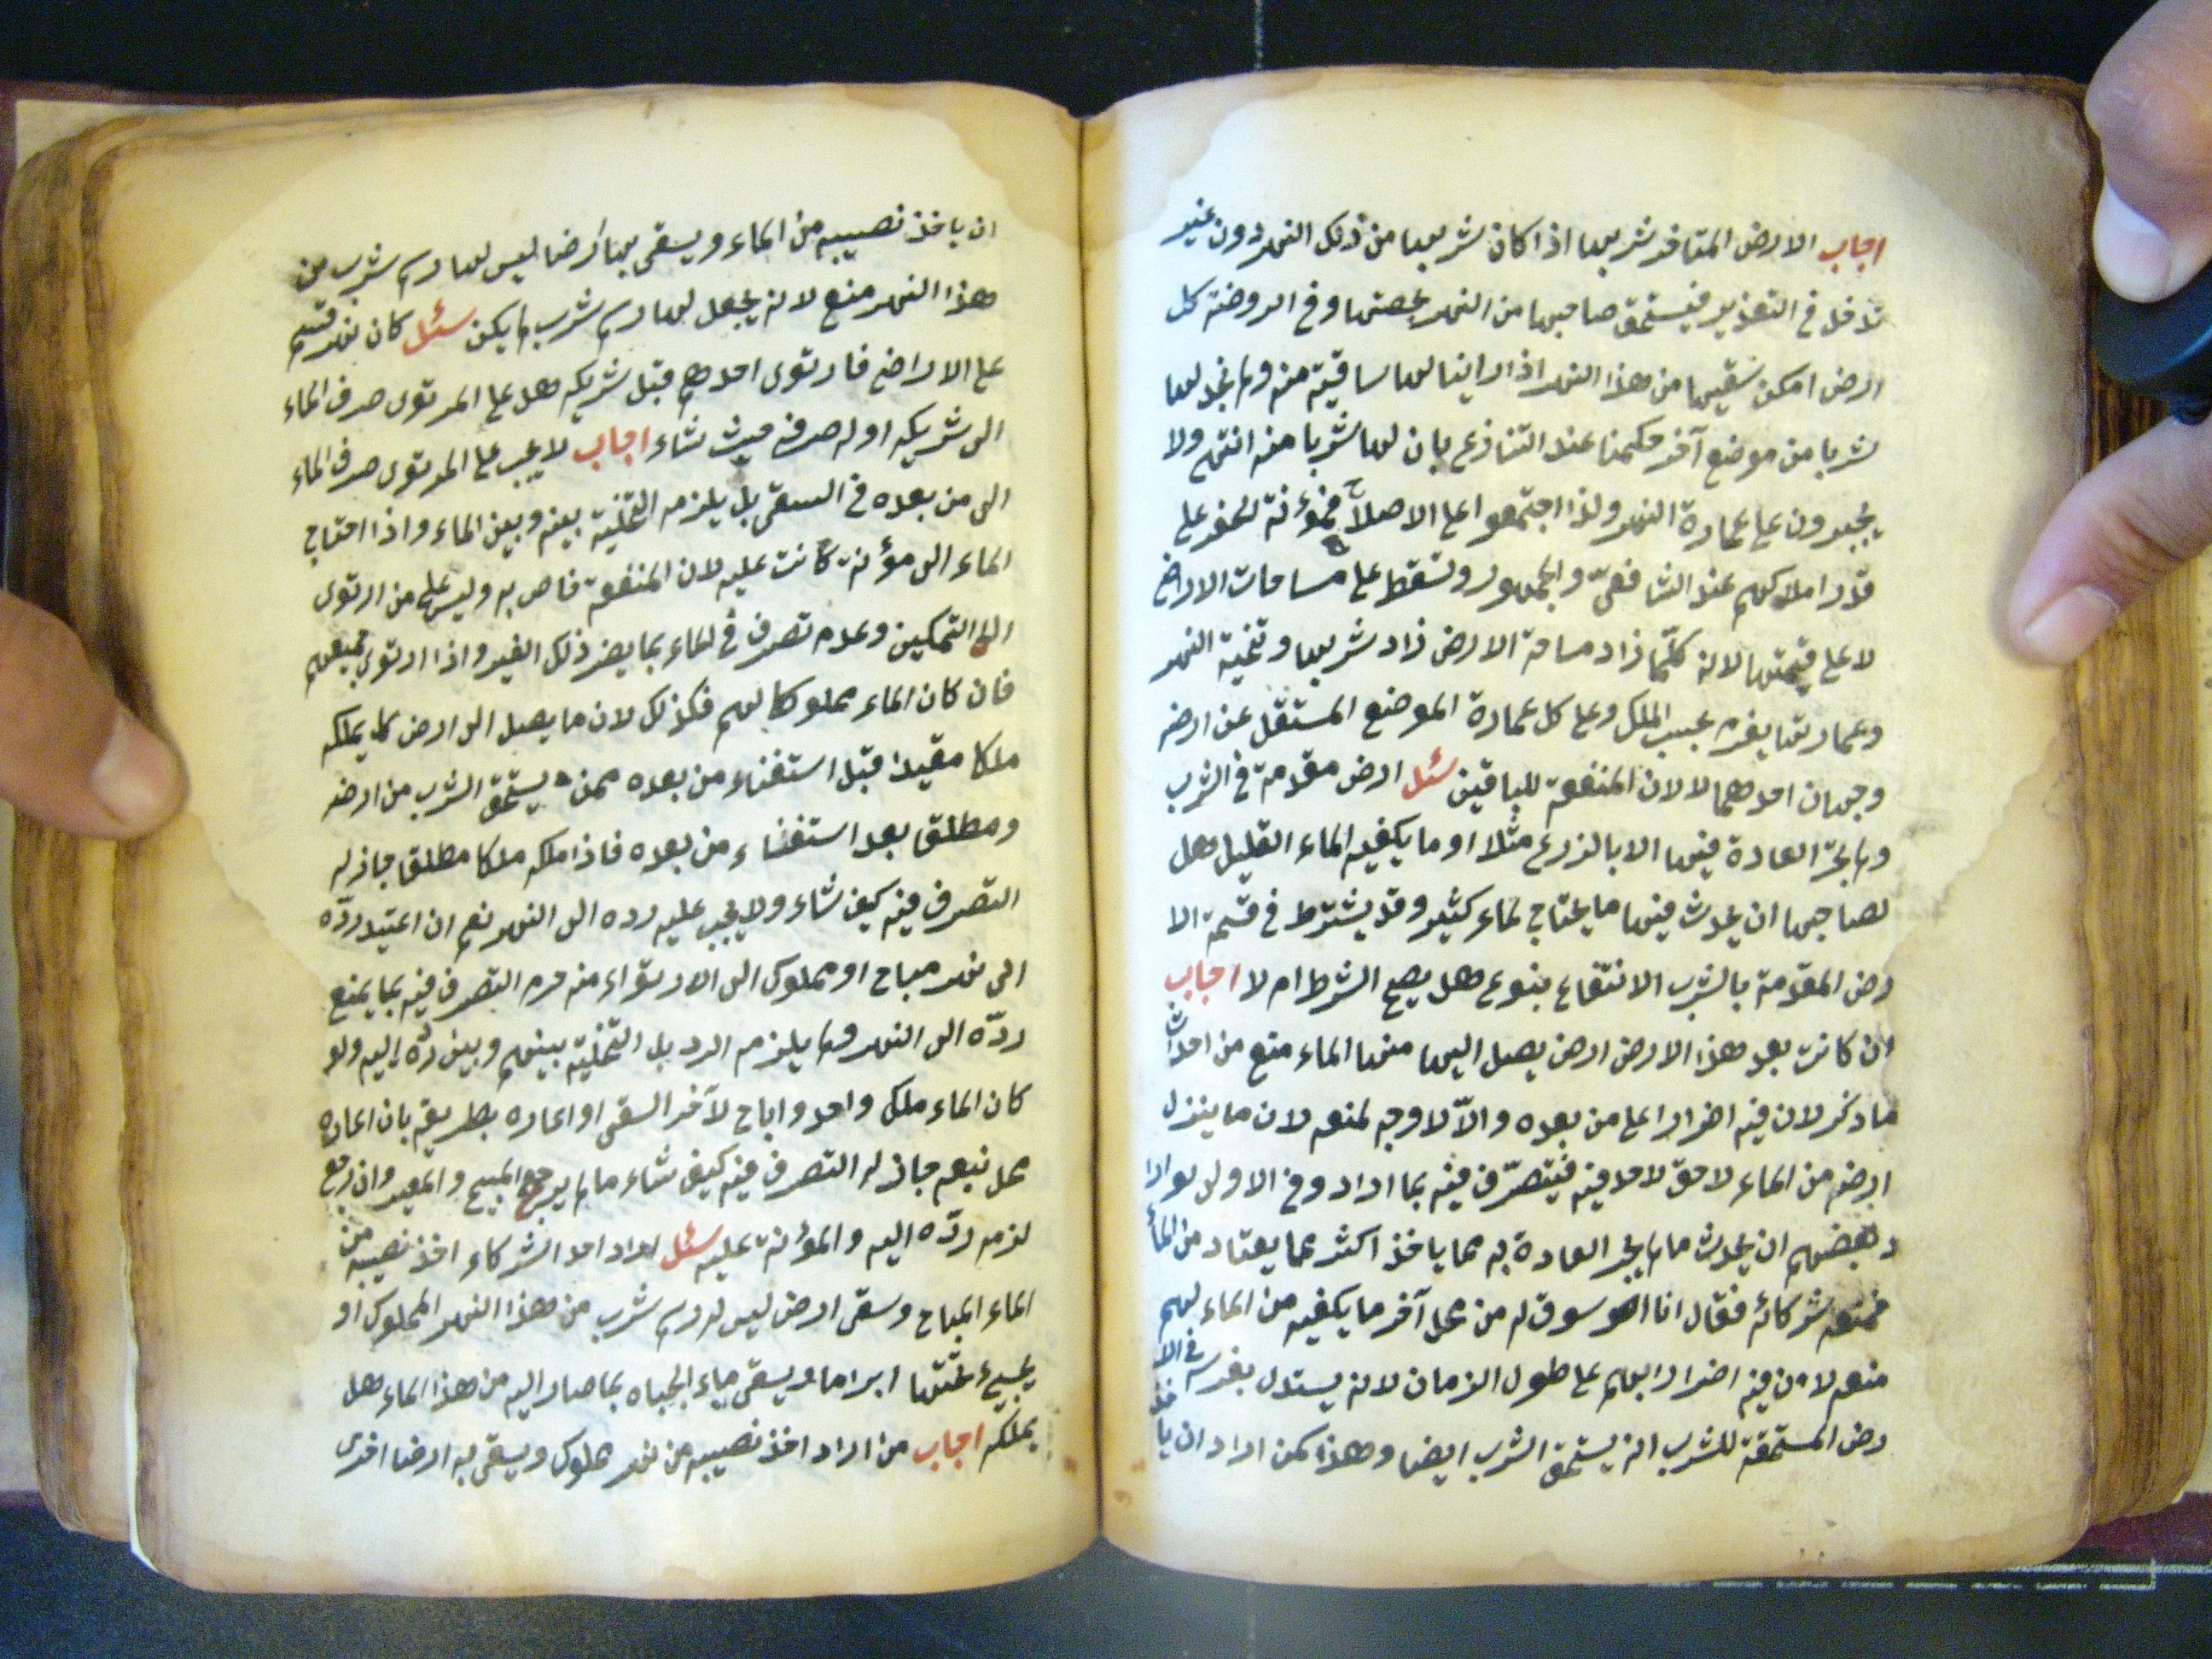 اجاب الارض المتاخر شربها اذا كان شربها من ذلك النهر دون غير
تدخل في التعذير فيستحق صاحبها من النهر بحصتها وفي الروضة كل
ارض امكن سقيها من هذا النهر اذا راينا لها ساقية منه ولم نجد لها
شربا من موضع آخر حكمنا عند التنازع بان لها شربا منه انتهى ولا
يجبرون على عمارة النهر ولذا اجتمعوا على الاصلاح فمؤنة الحفر على
قدر املاكهم عند الشافعيّ والجمهور وتسقط على مساحات الاراضي
لا على قيمتها لانه كلّما زاد مساحة الارض زاد شربها وتنحية النهر
وعمارتها يغرم بحسب الملك وعلى كل عمارة الموضع المستقل عن ارضه
وجهان احدهما لا لان المنفعة للباقين سئل ارض مقدمة في الشرب
ولم تجر العادة فيها الا بالزرع مثلا او ما يكفيه الماء القليل هل
لصاحبها ان يحدث فيها ما يحتاج لماء كثير وقد يشترط في قسمة الا
رض المقدمة بالشرب الانتفاع بنوع هل يصح الشرط ام لا اجاب
ان كانت بعد هذا الارض ارض يصل اليها منها الماء منع من احداث
ما ذكر لان فيه اضرارا على من بعده والاّ لا وجه لمنعه لان ما ينزل
ارضه من الماء لا حق لاحد فيه فيتصرّف فيه بما اراد وفي الاولى لو ارا
د بعضهم ان يحدث ما لم يجر العادة به مما ياخذ اكثر مما يعتاد من الماء
فمنعه شركائه فقال انا اسوق له من محل آخر ما يكفيه من الماء لهم
منعه لان فيه اضرارا بهم على طول الزمان لانه يستدل بغرسه في الا
رض المستحقة للشرب انه يستحق الشرب ايضا وهذا كمن اراد ان ياخذ
ان ياخذ نصيبه من الماء ويسقى بها ارضا ليس لها رسم شرب من
هذا النهر منع لانه يجعل لها رسم شرب لم يكن سئل كان نهر قسم
على الاراضي فارتوى احدهم قبل شريكه هل على المرتوى صرف الماء
الى شريكه او له صرفه حيث شاء اجاب لا يجب على المرتوى صرف الماء
الى من بعده في السقى بل يلزمه التخلية بينه وبين الماء واذا احتاج
الماء الى مؤنة كانت عليه لان المنفعة خاص به وليس على من ارتوى
الا التمكين وعدم تصرف في الماء بما يضر ذلك الغير واذا ارتوى جميعهم
فان كان الماء مملوكا لهم فكذلك لان ما يصل الى ارض كل يملكه
ملكا مقيدا قبل استغناء من بعده ممن يستحق الشرب من ارضه
ومطلقا بعد استغناء من بعده فاذا ملكه ملكا مطلقا جاز له
التصرف فيه كيف شاء ولا يجب عليه رده الى النهر نعم ان اعتيد ردّه
الى نهر مباح او مملوك الى الارتواء منه حرم التصرف فيه بما يمنع
ردّه الى النهر ولم يلزم الرد بل التخلية بينهم وبين ردّه اليه ولو
كان الماء ملك واحد واباح لآخر السقى او اعاره بطريقه بان اعاره
محل نبعه جاز له التصرف فيه كيف شاء ما لم يرجع المبيح والمعير وان رجع
لزمه ردّه اليه والمؤنة عليه سئل اراد احد الشركاء اخذ نصيبه من
الماء المباح وسقى ارض ليس له رسم شرب من هذا النهر المملوك او
يجيئ تحتها ابراما ويسقى مياء الجباه بما صار اليه من هذا الماء هل
يملكه اجاب من اراد اخذ نصيبه من نهر مملوك ويسقى به ارضا اخرى